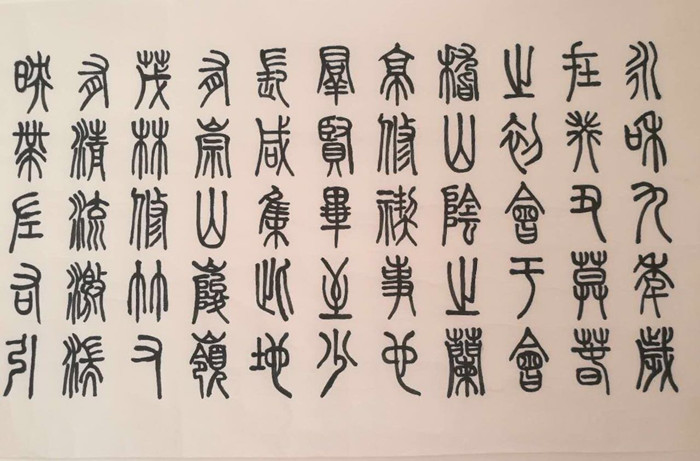 永和九年歲
在癸丑莫春
之初會于會
稽山陰之蘭
亭修禊事也
羣賢畢至少
長咸集此地
有崇山峻嶺
茂林修竹又
有清流激湍
映帶左右引